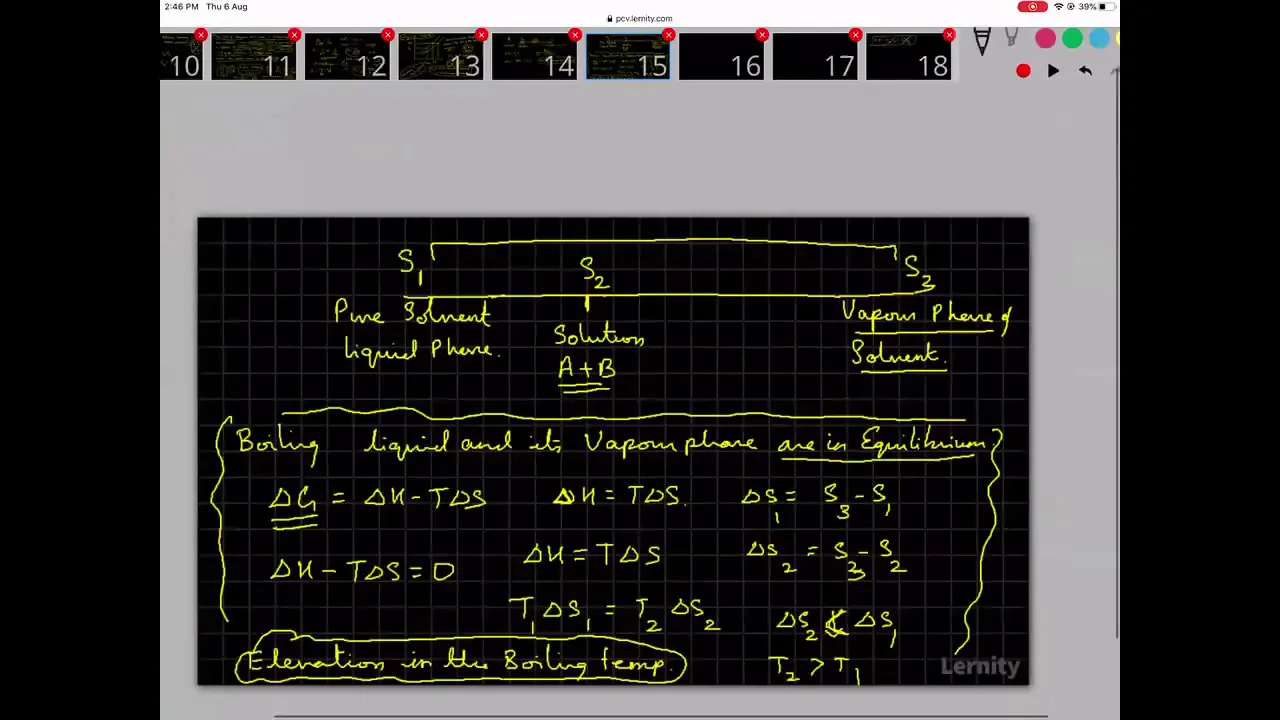 2:46 PM Thu 6 Aug 39%
pcv.lernity.com
10 11 12 13 14 15 16 17 18
S₁ S₂ S₃
Pure Solvent Vapour Phase of
Liquid Phase. Solution Solvent.
A+B
Boiling liquid and its Vapour phase are in Equilibrium
ΔG = ΔH - TΔS ΔH = TΔS. ΔS₁ = S₃ - S₁
ΔH - TΔS = 0 ΔH = TΔS ΔS₂ = S₃ - S₂
T₁ΔS₁ = T₂ΔS₂ ΔS₂ < ΔS₁
Elevation in the Boiling temp. T₂ > T₁
Lernity